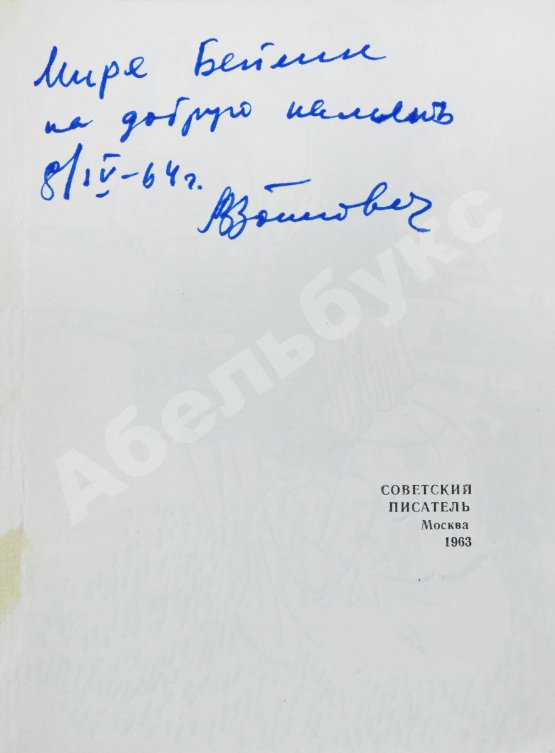 Мире Бейлин
на добрую память
8/IV-64 г.
ВВойнович
Абельбукс
СОВЕТСКИЙ
ПИСАТЕЛЬ
Москва
1963